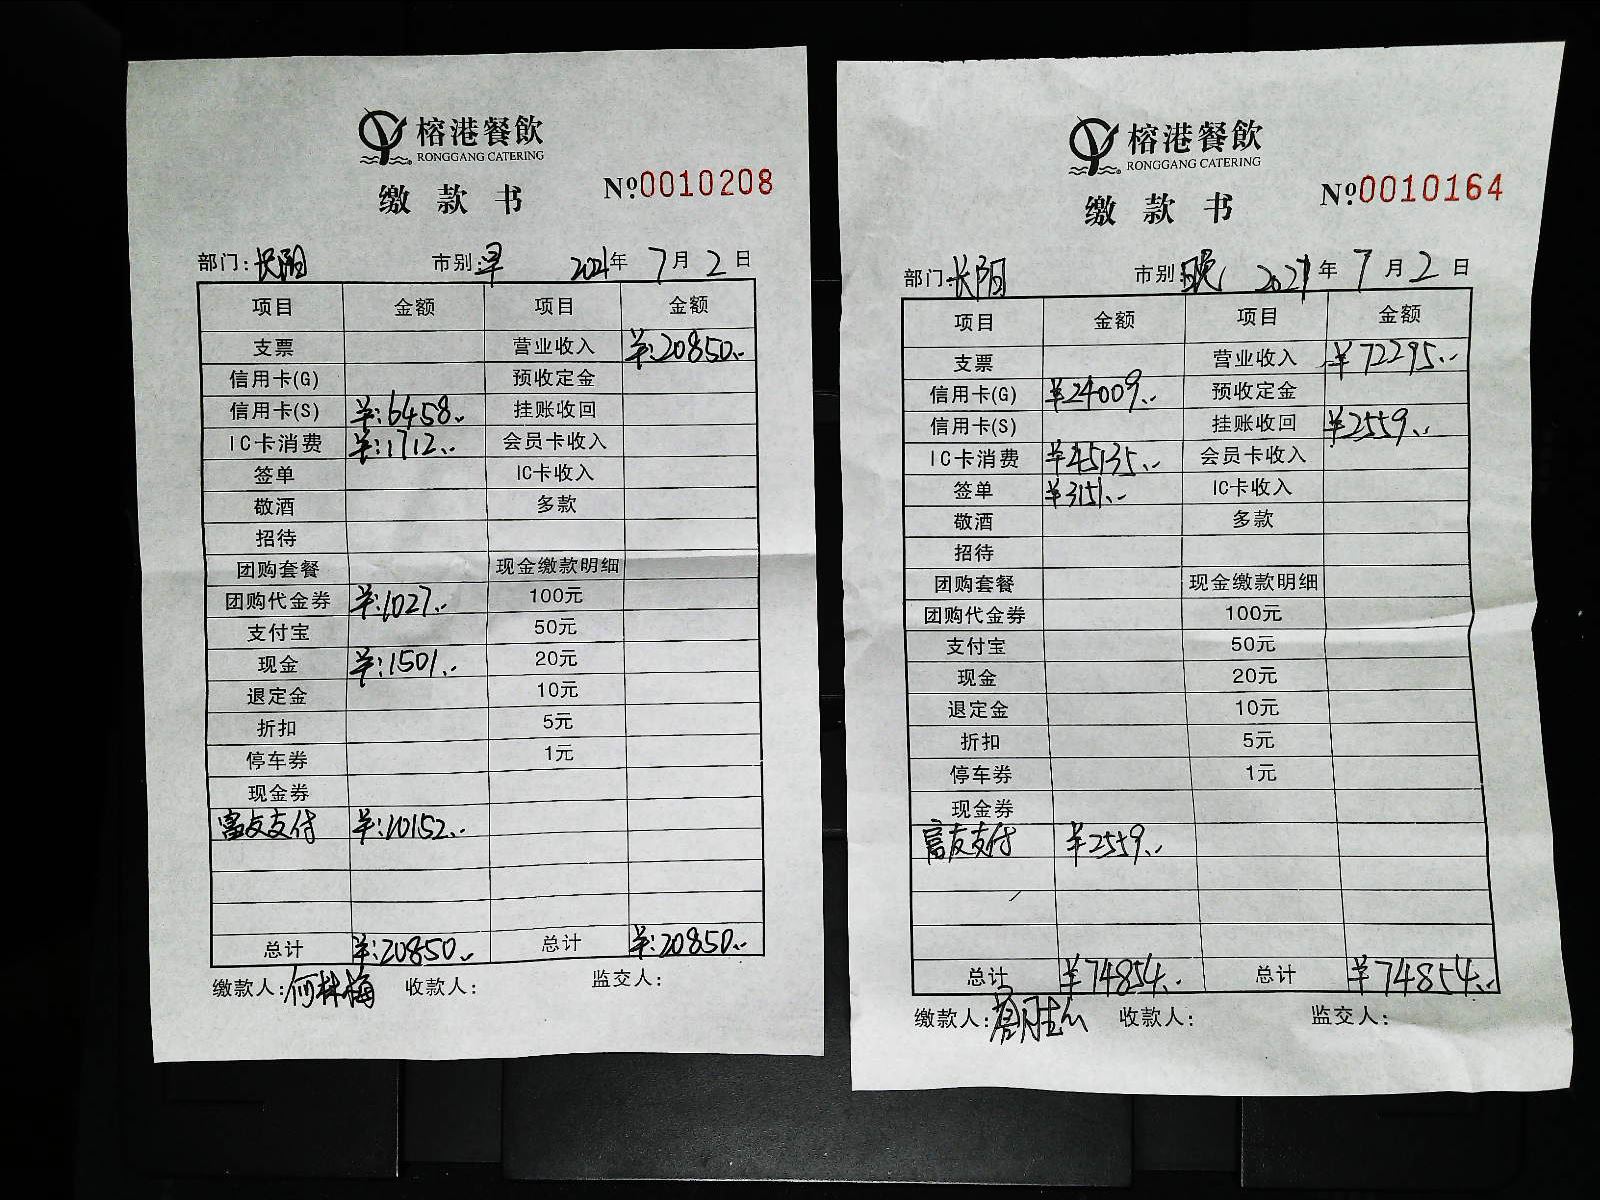 榕港餐飲
RONGGANG CATERING
缴款书
№0010208
部门:长阳 市别:早 2021年7月2日
项目 金额 项目 金额
支票 营业收入 ¥:20850.-
信用卡(G) 预收定金
信用卡(S) ¥:6458.- 挂账收回
IC卡消费 ¥:1712.- 会员卡收入
签单 IC卡收入
敬酒 多款
招待
团购套餐 现金缴款明细
团购代金券 ¥:1027.- 100元
支付宝 50元
现金 ¥:1501.- 20元
退定金 10元
折扣 5元
停车券 1元
现金券
富友支付 ¥:10152.-
总计 ¥:20850.- 总计 ¥:20850.-
缴款人:何林梅 收款人: 监交人:
榕港餐飲
RONGGANG CATERING
缴款书
№0010164
部门:长阳 市别:晚 2021年7月2日
项目 金额 项目 金额
支票 营业收入 ¥72295.-
信用卡(G) ¥24009.- 预收定金
信用卡(S) 挂账收回 ¥2559.-
IC卡消费 ¥45135.- 会员卡收入
签单 ¥3151.- IC卡收入
敬酒 多款
招待
团购套餐 现金缴款明细
团购代金券 100元
支付宝 50元
现金 20元
退定金 10元
折扣 5元
停车券 1元
现金券
富友支付 ¥2559.-
总计 ¥74854.- 总计 ¥74854.-
缴款人: 收款人: 监交人: